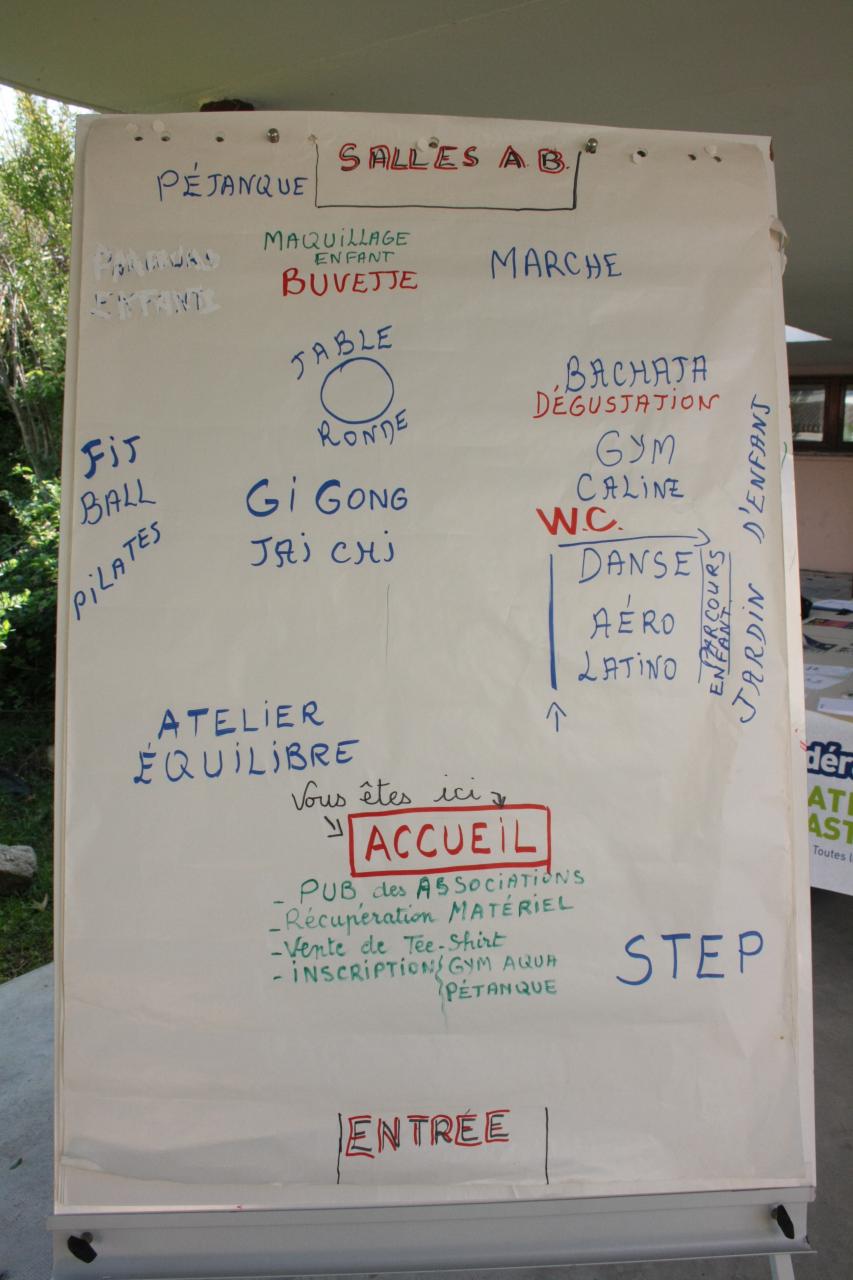 SALLES A B.
PÉTANQUE
MAQUILLAGE
ENFANT
BUVETTE
MARCHE
PARCOURS
ENFANT
TABLE
RONDE
BACHATA
DÉGUSTATION
GYM
CALINE
FIT
BALL
PILATES
GI GONG
TAI CHI
W.C.
DANSE
AÉRO
LATINO
PARCOURS
ENFANT
JARDIN D'ENFANT
ATELIER
ÉQUILIBRE
Vous êtes ici
ACCUEIL
- PUB des ASSOCIATIONS
- Récupération MATÉRIEL
- Vente de Tee-Shirt
- INSCRIPTION { GYM AQUA
PÉTANQUE
STEP
ENTRÉE
dér
ATI
AST
Toutes l